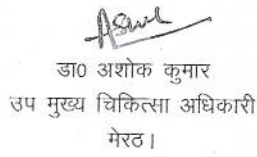 डा0 अशोक कुमार
उप मुख्य चिकित्सा अधिकारी
मेरठ।